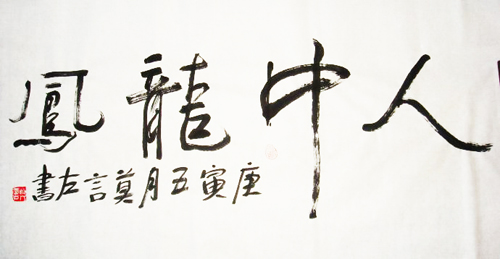 人中龍鳳
庚寅五月莫言左書